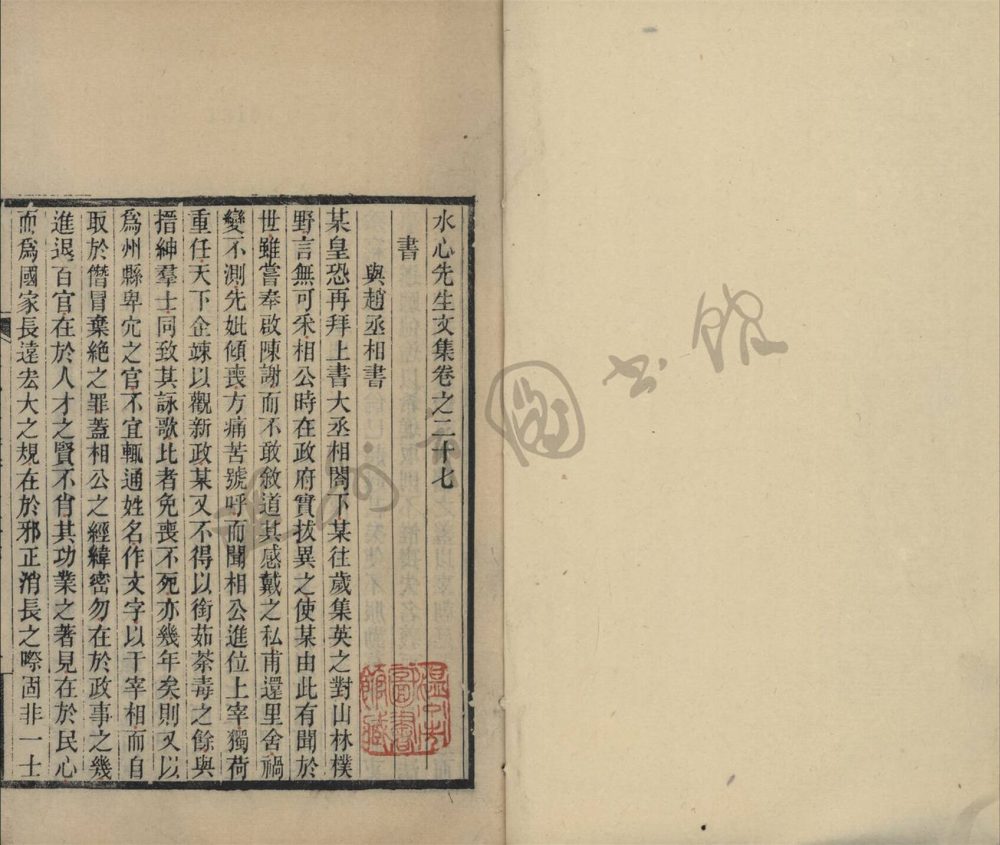 水心先生文集卷之二十七
書
與趙丞相書
某皇恐再拜上書大丞相閤下某往歲集英之對山林樸
野言無可采相公時在政府實拔異之使某由此有聞於
世雖嘗奉啟陳謝而不敢敘道其感戴之私甫還里舍禍
變不測先妣傾喪方痛苦號呼而聞相公進位上宰獨荷
重任天下企竦以觀新政某又不得以銜茹荼毒之餘與
搢紳羣士同致其詠歌比者免喪不死亦幾年矣則又以
爲州縣卑宂之官不宜輒通姓名作文字以干宰相而自
取於僭冒棄絶之罪蓋相公之經緯密勿在於政事之幾
進退百官在於人才之賢不肖其功業之著見在於民心
而爲國家長遠宏大之規在於邪正消長之際固非一士
溫州市
圖書
館藏
圖书館